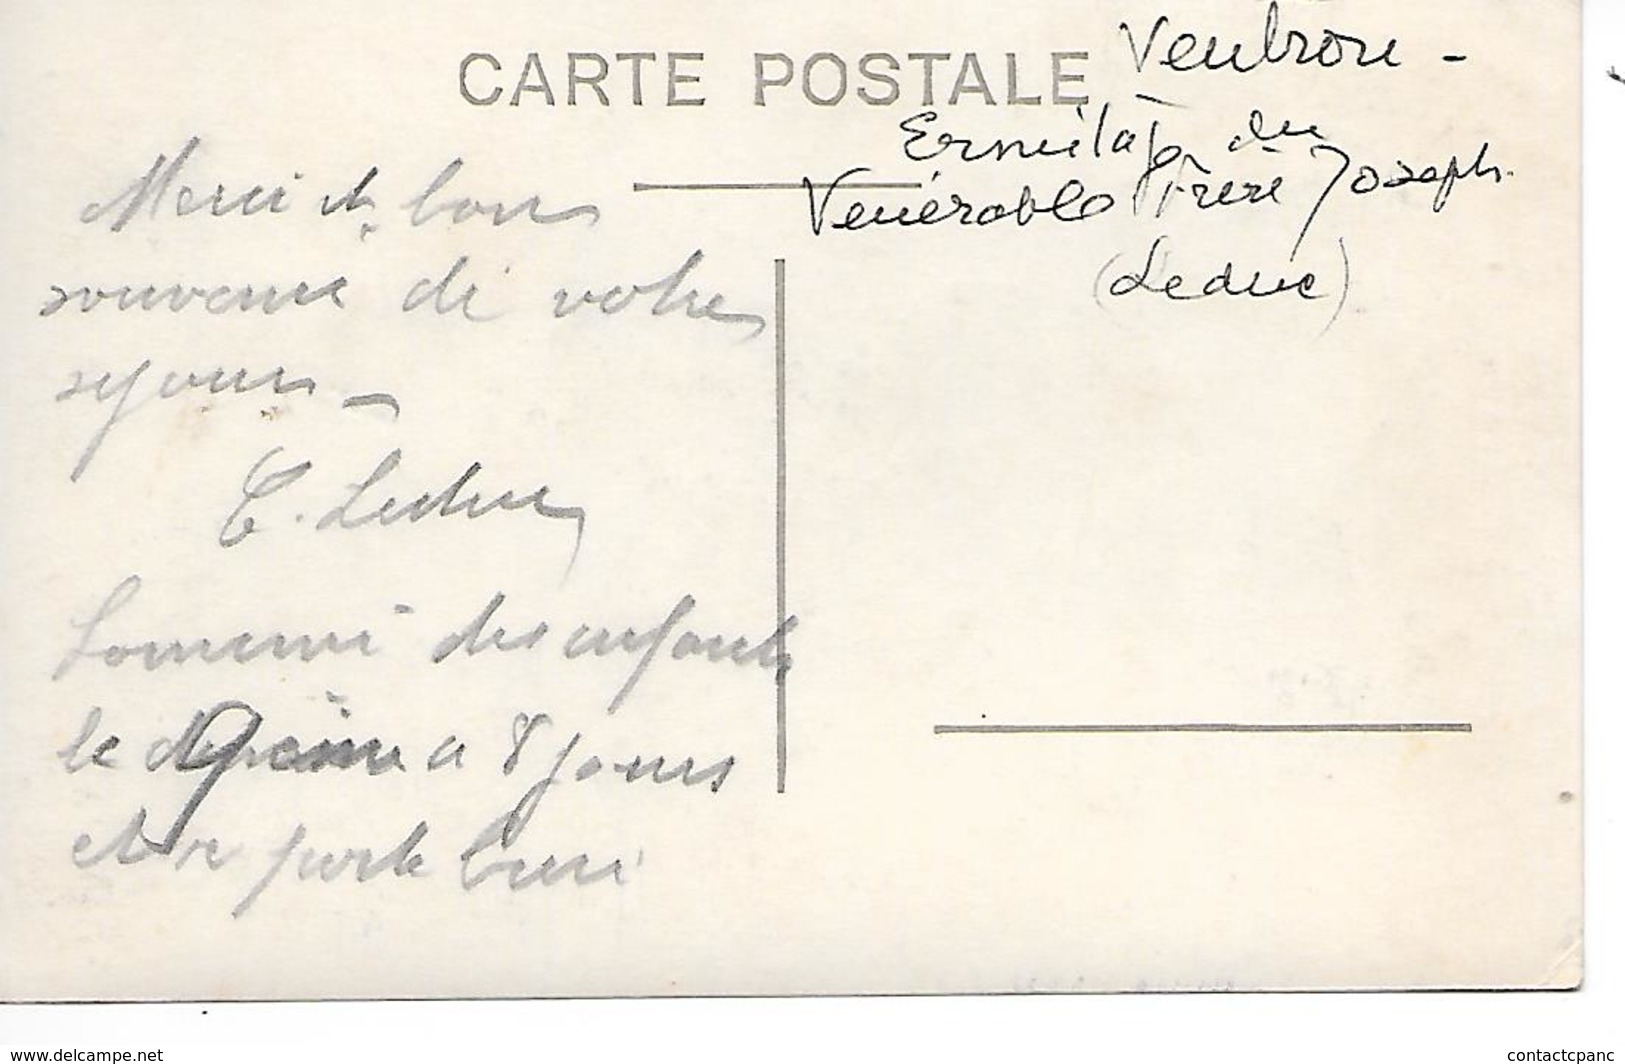 CARTE POSTALE
Ventron -
Ermitage du
Vénérable Frère Joseph.
(Leduc)
Merci et bon
souvenir de votre
sejour -
C. Leduc
Souvenir des enfants
le a 8 jours
et se porte bien
www.delcampe.net
contactcpanc